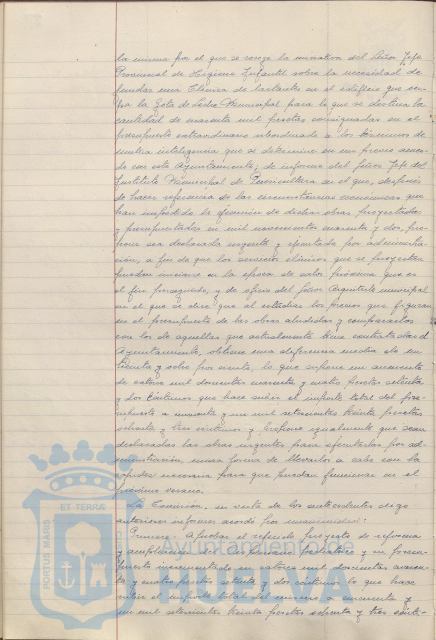 la misma por el que se recoge la iniciativa del Señor Jefe
Provincial de Higiene Infantil sobre la necesidad de
fundar una Clínica de lactantes en el edificio que ocu-
pa la Gota de Leche Municipal para lo que se destina la
cantidad de cuarenta mil pesetas consignadas en el
presupuesto extraordinario subordinado a los términos de
mutua inteligencia que se determine en un previo acuer-
do con este Ayuntamiento; de informe del Señor Jefe del
Instituto Municipal de Puericultura en el que, después
de hacer referencia de las circunstancias económicas que
han impedido la ejecución de dichas obras proyectadas
y presupuestadas en mil novecientos cuarenta y dos, pro-
pone sea declarada urgente y ejecutada por administra-
ción, a fin de que los servicios clínicos que se proyectan
puedan iniciarse en la época de calor próxima que es
el fin perseguido, y de oficio del Señor Arquitecto municipal
en el que se dice que al estudiar los precios que figuran
en el presupuesto de las obras aludidas y compararlos
con los de aquellas que actualmente tiene contratadas el
Ayuntamiento, obtiene una diferencia media de un
treinta y ocho por ciento, lo que supone un aumento
de catorce mil doscientas cuarenta y cuatro pesetas setenta
y dos céntimos que hace subir el importe total del pre-
supuesto a cincuenta y un mil setecientas treinta pesetas
ochenta y tres céntimos y propone igualmente que sean
declaradas las obras urgentes para ejecutarlas por ad-
ministración, única forma de llevarlas a cabo con la
rapidez necesaria para que puedan funcionar en el
próximo verano.
La Comisión, en vista de los antecedentes digo
anteriores informes acordó por unanimidad:
Primero: Aprobar el referido proyecto de reforma
y ampliación del y su presu-
puesto incrementado en catorce mil doscientas cuaren-
ta y cuatro pesetas setenta y dos céntimos lo que hace
subir el importe total del mismo a cincuenta y
un mil setecientas treinta pesetas ochenta y tres cénti-
PORTUS MARIS
ET TERRÆ
Ayuntamiento de